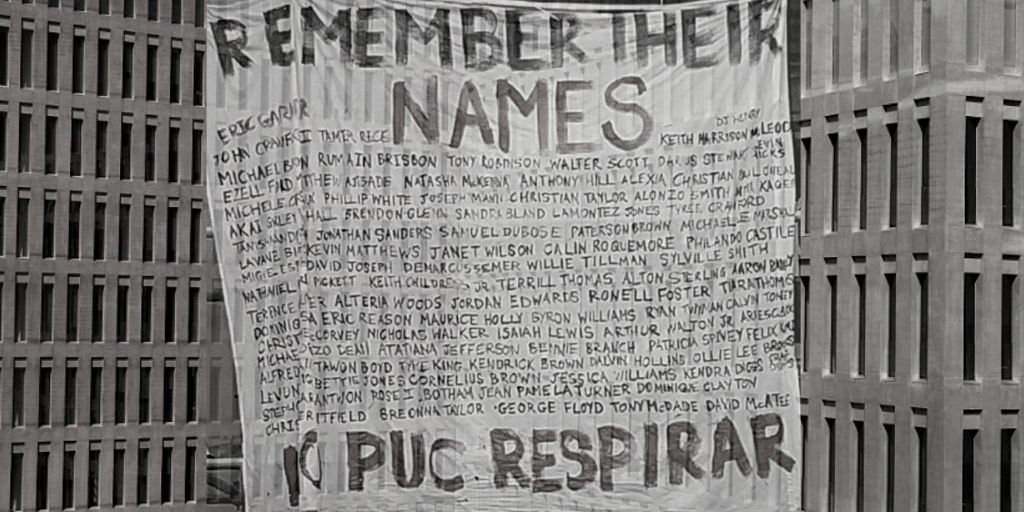 REMEMBER THEIR
NAMES
ERIC GARNER
DJ HENRY
JOHN CRAWFORD TAMIR RICE KEITH HARRISON MCLEOD
MICHAEL BROWN RUMAIN BRISBON TONY ROBINSON WALTER SCOTT DARIUS STEWART KEVIN HICKS
EZELL FORD AJIBADE NATASHA McKENNA ANTHONY HILL ALEXIA CHRISTIAN
MICHELLE PHILLIP WHITE JOSEPH MANN CHRISTIAN TAYLOR ALONZO SMITH KAGER
AKAI GURLEY HALL BRENDON GLENN SANDRA BLAND LAMONTEZ JONES TYREE CRAWFORD
JONATHAN SANDERS SAMUEL DUBOSE PATERSON BROWN MICHAEL LEE MARSHALL
KEVIN MATTHEWS JANET WILSON CALIN ROQUEMORE PHILANDO CASTILE
DAVID JOSEPH DEMARCUS SEMER WILLIE TILLMAN SYLVILLE SMITH
NATHANIEL PICKETT KEITH CHILDRESS JR. TERRILL THOMAS ALTON STERLING AARON BAILEY
TERENCE ALTERIA WOODS JORDAN EDWARDS RONELL FOSTER TIARA THOMAS
ERIC REASON MAURICE HOLLY BYRON WILLIAMS RYAN TWYMAN CALVIN TONEY
CHRIST NICHOLAS WALKER ISAIAH LEWIS ARTHUR WALTON JR
MICHAEL ATATIANA JEFFERSON BENNIE BRANCH PATRICIA SPIVEY FELIX
ALFRED BOYD TYRE KING KENDRICK BROWN DALVIN HOLLINS OLLIE LEE BROOKS
BETTIE JONES CORNELIUS BROWN JESSICA WILLIAMS KENDRA DIGGS
ANTWON ROSE I. BOTHAM JEAN PAMELA TURNER DOMINIQUE CLAYTON
CHRIS BREONNA TAYLOR GEORGE FLOYD TONY McDADE DAVID McATEE
NO PUC RESPIRAR